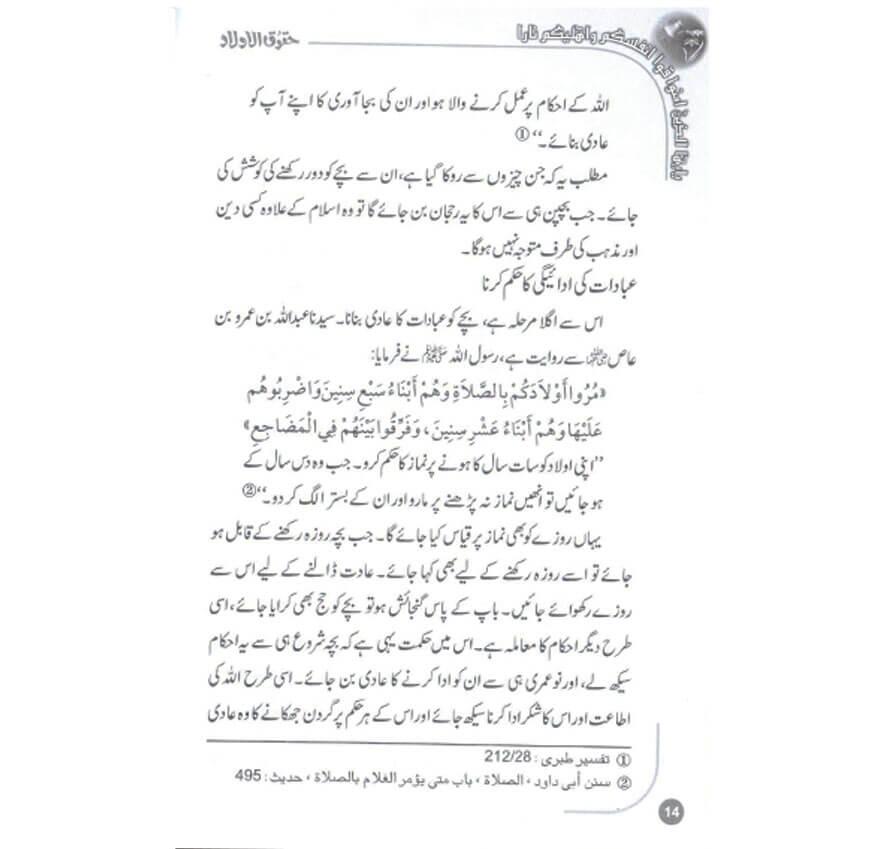 حقوق الاولاد
یایها الذین امنوا قوا انفسکم واهلیکم نارا
اللہ کے احکام پر عمل کرنے والا ہو اور ان کی بجا آوری کا اپنے آپ کو
عادی بنائے۔‘‘①
مطلب یہ کہ جن چیزوں سے روکا گیا ہے، ان سے بچے کو دور رکھنے کی کوشش کی
جائے۔ جب بچپن ہی سے اس کا یہ رجحان بن جائے گا تو وہ اسلام کے علاوہ کسی دین
اور مذہب کی طرف متوجہ نہیں ہوگا۔
عبادات کی ادائیگی کا حکم کرنا
اس سے اگلا مرحلہ ہے، بچے کو عبادات کا عادی بنانا۔ سیدنا عبداللہ بن عمرو بن
عاص رضی اللہ عنہما سے روایت ہے، رسول اللہ ﷺ نے فرمایا:
«مُرُوا أَوْلَادَكُمْ بِالصَّلَاةِ وَهُمْ أَبْنَاءُ سَبْعِ سِنِينَ وَاضْرِبُوهُم
عَلَيْهَا وَهُمْ أَبْنَاءُ عَشْرِ سِنِينَ، وَفَرِّقُوا بَيْنَهُمْ فِي الْمَضَاجِعِ»
’’اپنی اولاد کو سات سال کا ہونے پر نماز کا حکم کرو۔ جب وہ دس سال کے
ہو جائیں تو انھیں نماز نہ پڑھنے پر مارو اور ان کے بستر الگ کر دو۔‘‘②
یہاں روزے کو بھی نماز پر قیاس کیا جائے گا۔ جب بچہ روزہ رکھنے کے قابل ہو
جائے تو اسے روزہ رکھنے کے لیے بھی کہا جائے۔ عادت ڈالنے کے لیے اس سے
روزے رکھوائے جائیں۔ باپ کے پاس گنجائش ہو تو بچے کو حج بھی کرایا جائے، اسی
طرح دیگر احکام کا معاملہ ہے۔ اس میں حکمت یہی ہے کہ بچہ شروع ہی سے یہ احکام
سیکھ لے، اور نوعمری ہی سے ان کو ادا کرنے کا عادی بن جائے۔ اسی طرح اللہ کی
اطاعت اور اس کا شکر ادا کرنا سیکھ جائے اور اس کے ہر حکم پر گردن جھکانے کا وہ عادی
① تفسير طبري: 212/28
② سنن أبي داود، الصلاة، باب متى يؤمر الغلام بالصلاة، حديث: 495
14